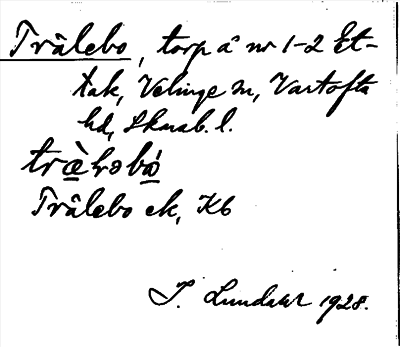 Trålebo, torp å nr 1-2 Et-
tak, Velinge sn, Vartofta
hd, Skarab. l.
Trålebo ek, Kb
J. Lundahl 1928.